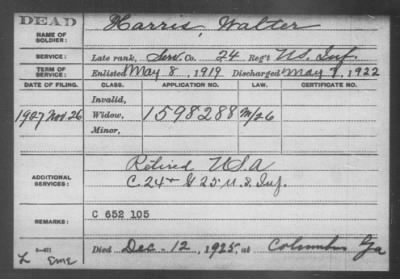 DEAD
NAME OF SOLDIER: Harris, Walter
SERVICE: Late rank, Serv. Co. 24 Reg't U.S. Inf.
TERM OF SERVICE: Enlisted May 8, 1919 Discharged May 7, 1922
DATE OF FILING. CLASS. APPLICATION NO. LAW. CERTIFICATE NO.
Invalid,
1927 Nov 26 Widow, 1598288 M/26
Minor,
ADDITIONAL SERVICES: Retired U.S.A
C. 24 & G 25 U.S. Inf.
REMARKS: C 652 105
Died Dec. 12, 1925, at Columbus Ga